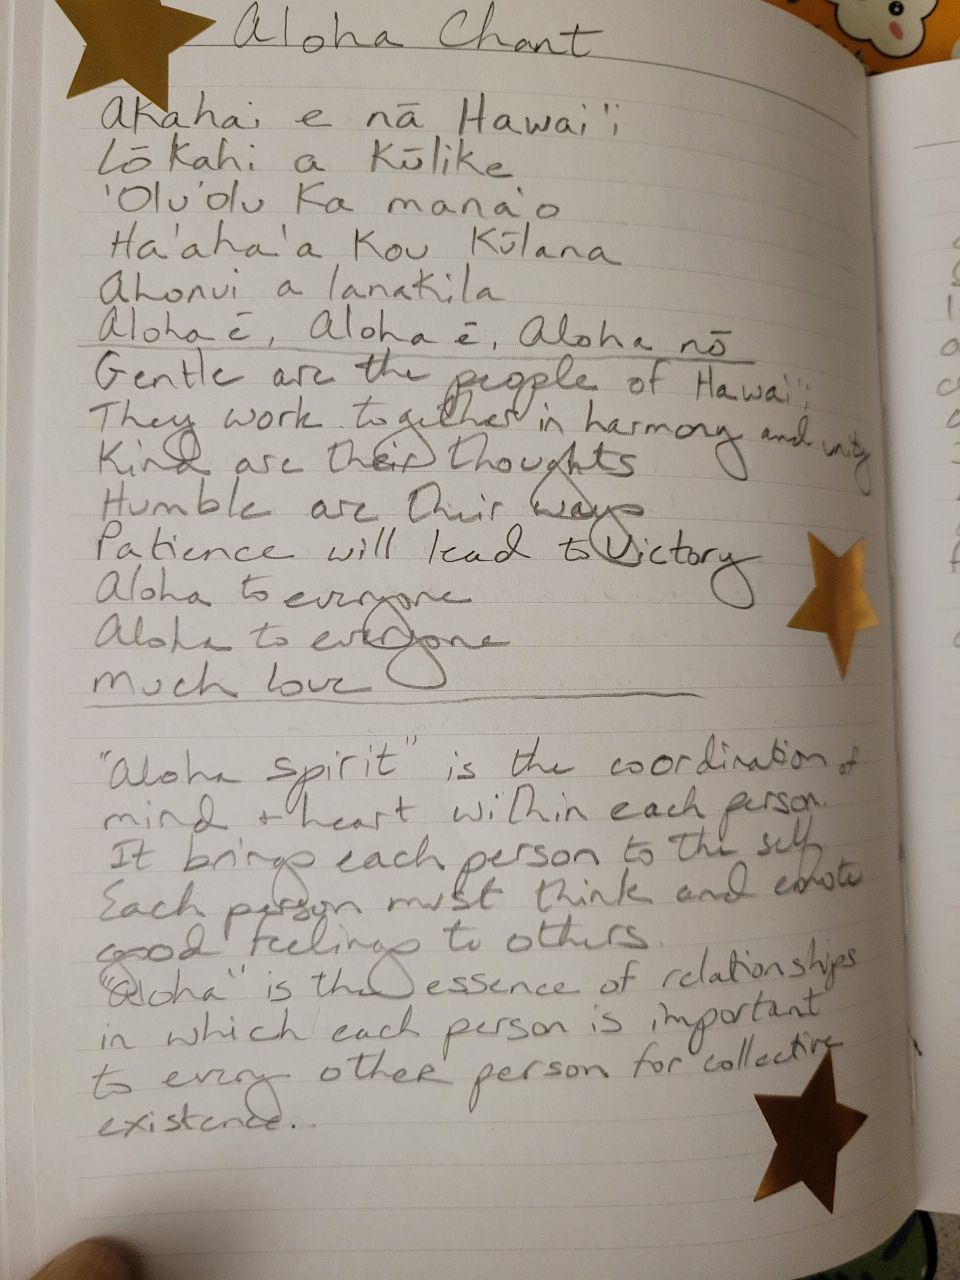 Aloha Chant
Akahai e nā Hawai'i
Lōkahi a Kūlike
'Olu'olu Ka mana'o
Ha'aha'a Kou Kūlana
Ahonui a lanakila
Aloha ē, Aloha ē, Aloha nō
Gentle are the people of Hawai'i
They work together in harmony and unity
Kind are their thoughts
Humble are their ways
Patience will lead to Victory
Aloha to everyone
Aloha to everyone
Much love
"Aloha spirit" is the coordination of
mind + heart within each person.
It brings each person to the self.
Each person must think and emote
good feelings to others.
"Aloha" is the essence of relationships
in which each person is important
to every other person for collective
existence...